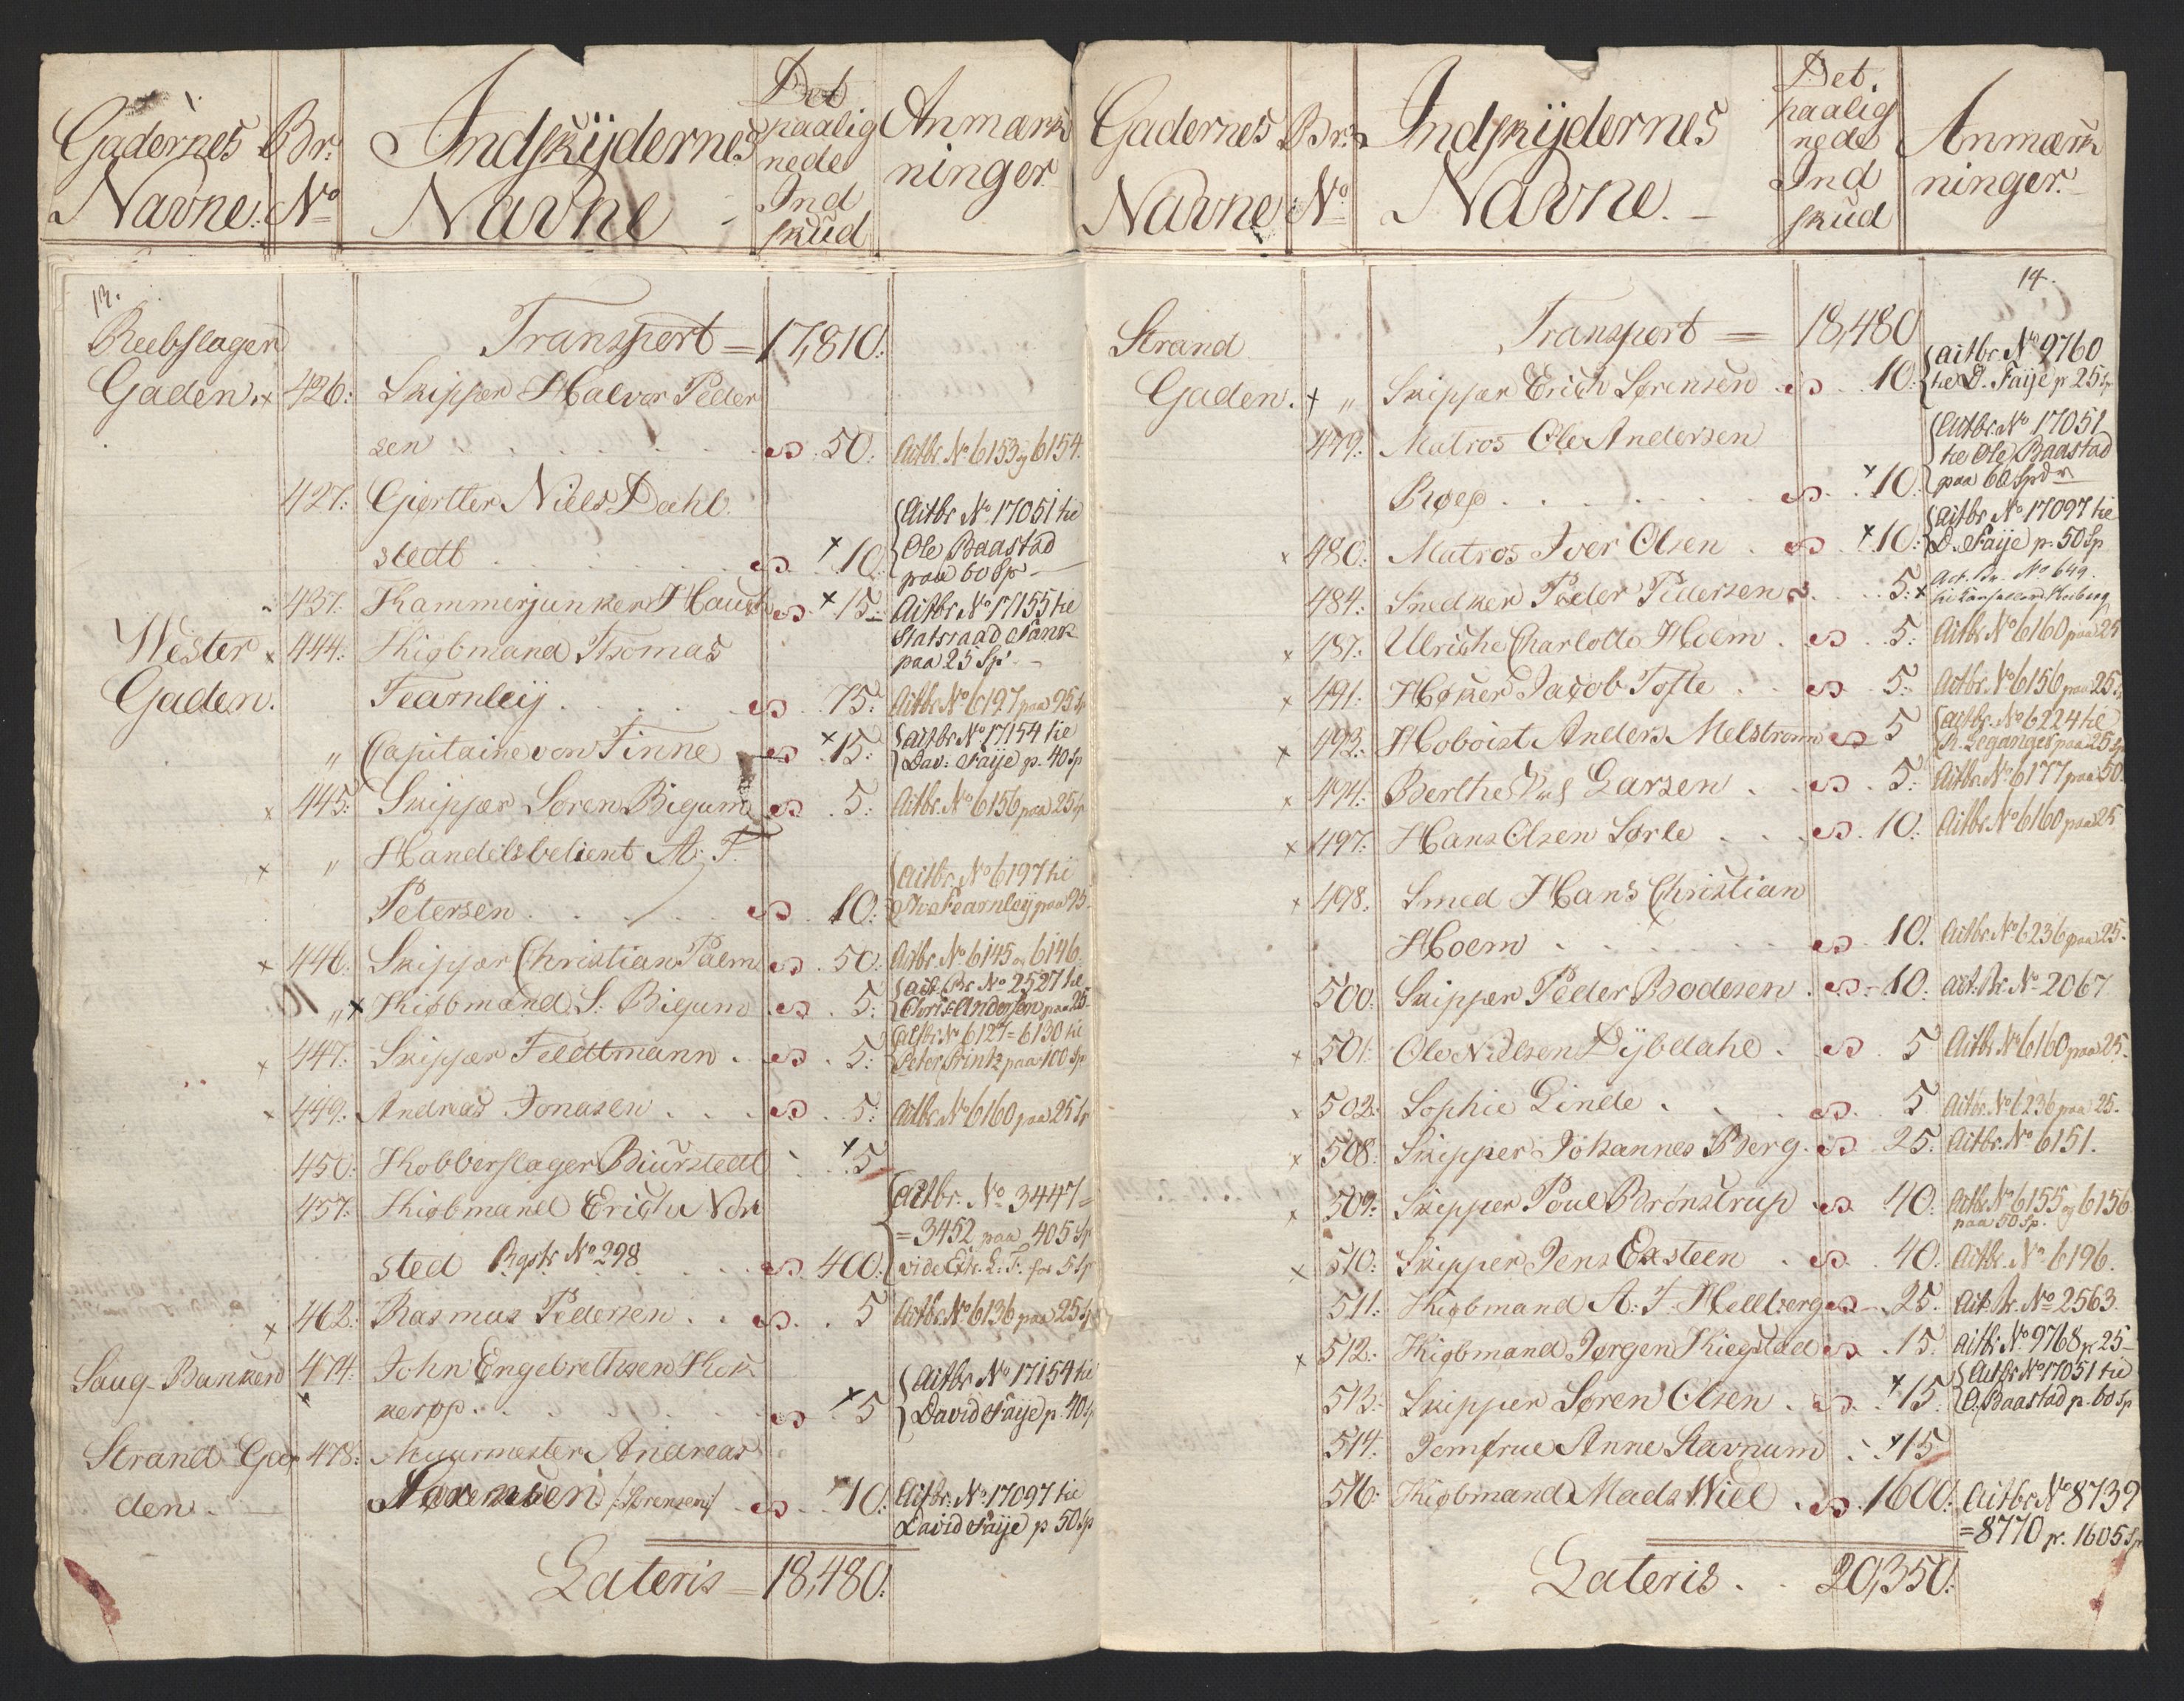 Gadernes Navne. Br. No Indskÿdernes Navne Det paalignede Indskud Anmærkninger
13.
Reebslager Transport = 17,810.
Gaden. × 426: Skipper Halvor Peder
sen . . . . . s 50. Actbr. No 6153 og 6154.
427. Giørtler Niels Dahl
stedt . . . s × 10. Actbr No 17051 til Ole Baastad paa 60 Sp
437. Kammerjunker Hauch s × 15 Actbr No 17155 til
Wester × 444. Kiøbmand Thomas Statsraad Tank paa 25 Sp
Gaden. Fearnleÿ . . . s 75. Actbr. No 6197 paa 95 Sp
„ Capitaine von Finne s × 15. Actbr No 17154 til Dav: Faÿe p. 40 Sp
× 445. Skipper Søren Bigum s 5. Actbr. No 6156 paa 25 Sp
× „ Handelsbetient A. F.
Petersen . . . s 10. Actbr. No 6197 til Ths Fearnleÿ paa 95
× 446. Skipper Christian Palm s 50. Actbr. No 6145 og 6146.
„ × Kiøbmand S. Bigum s 5. Act Br No 2527 til Chris: Andersen paa 25
× 447. Skipper Feldtmann . s . 5. Actbr No 6127 = 6130 til Peter Printz paa 100 Sp
× 449. Andreas Jonasen . . s . 5. Actbr No 6160 paa 25 Sp
450. Kobberslager Biurstedt × 5
457. Kiøbmand Erich Nor Actbr. No 3447 =
sted Rgstr No 298 s 400. = 3452 paa 405 Sp vide Extr. L. F. for 5 Sp
× 462. Rasmus Pedersen . . s . 5 Actbr. No 6136 paa 25 Sp
Saug-Banken 474. John Engebrethsen Kok
kerøp . . . s × 5 Actbr No 17154 til David Faÿe p. 40 Sp
Strand Ga 478. Muurmester Andreas
den. Sørensen /:Sørensen:/ s × 10. Actbr. No 17097 til David Faÿe p 50 Sp
Lateris = 18,480.
Gadernes Navne Br. No Indskÿdernes Navne. Det paalignede Indskud Anmærkninger.
14.
Strand Transport = 18,480
Gaden. × „ Skipper Erich Sørensen s 10. Actbr. No 9760 til D. Faÿe p 25 Sp
479. Matros Ole Andersen
Røep . . . s × 10. Actbr. No 17051 til Ole Baastad paa 60 Spdr
× 480. Matros Iver Olsen . s × 10. Actbr No 17097 til D. Faÿe p. 50 Sp
484. Snedker Peder Pedersen s 5. × Act. Br. No 649.
× 487. Ulriche Charlotte Hoem . s 5. Actbr No 6160 paa 25
× 491. Høker Jacob Tofte . . s 5. Actbr. No 6156 paa 25 Sp
× 493. Hoboist Anders Melstrøm s 5 Actbr. No 6224 til R. Leganger paa 25 Sp
× 494. Berthe Larsen . . s . 5. Actbr. No 6177 paa 50.
× 497. Hans Olsen Sørle . . s . 10. Actbr. No 6160 paa 25
× 498. Smed Hans Christian
Hoem . . . s 10. Actbr. No 6236 paa 25.
500. Skipper Peder Bodesen . s 10. act. Br. No 2067
× 501. Ole Nielsen Dÿbdahl . s . 5 Actbr No 6160 paa 25.
× 502. Sophie Linde . . . s . 5 Actbr. No 6236 paa 25.
× 508. Skipper Johannes Berg . s 25. Actbr. No 6151.
× 509. Skipper Poul Brønstrup s 40. Actbr. No 6155 og 6156 paa 50 Sp.
× 510. Skipper Jens Exsteen . s . 40. Actbr. No 6196.
511. Kiøbmand A. F. Hellberg s 25. Act. Br. No 2563.
× 512. Kiøbmand Jørgen Kiegstad s . 15. Actbr. No 9768 p 25
513. Skipper Søren Olsen . s × 15. Actbr No 17051 til O. Baastad p. 60 Sp
514. Jomfrue Anne Stavnum × 15
516. Kiøbmand Mads Wiel . s 1600. Actbr No 8739
= 8770 p. 1605 Sp
Lateris . . 20,350.